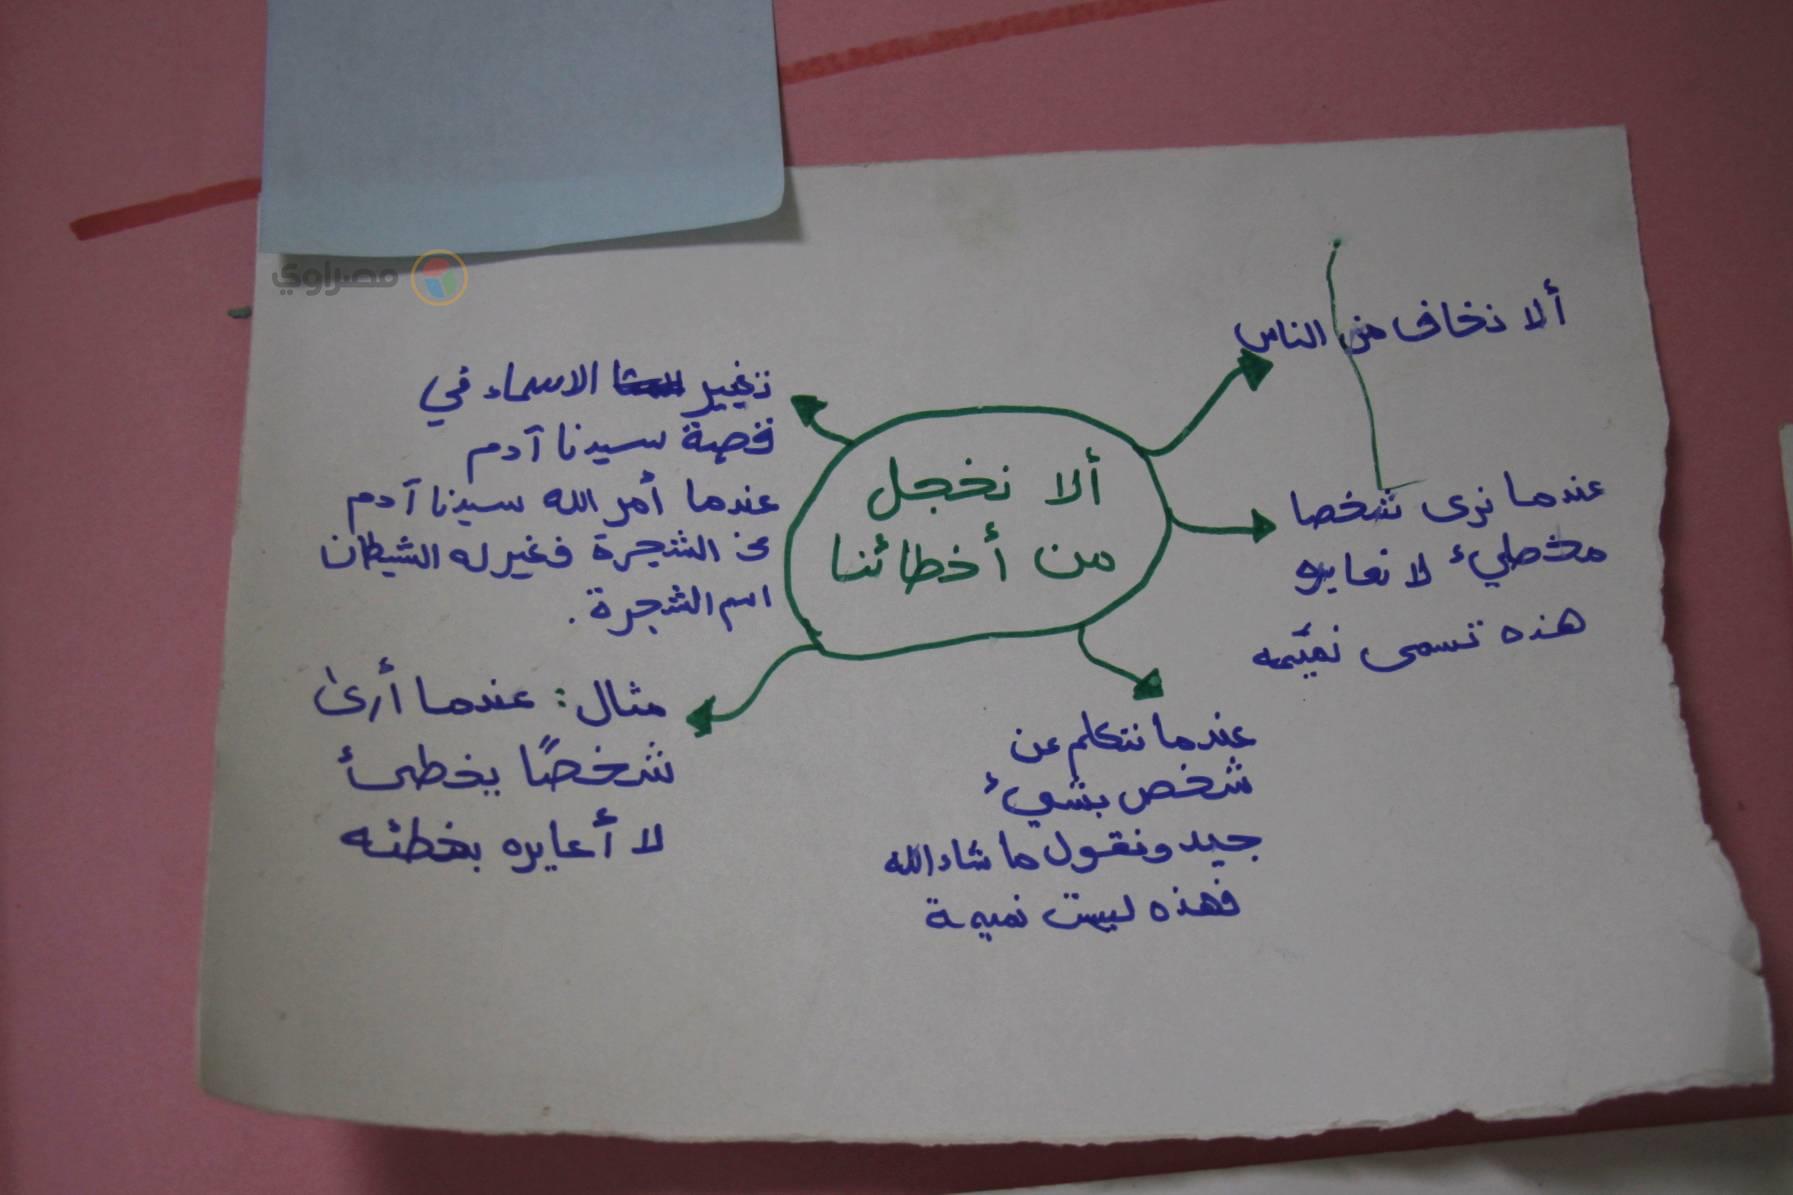 مصراوي
ألا نخجل
من أخطائنا
ألا نخاف من الناس
عندما نرى شخصا
مخطيء لا نعايرو
هذه تسمى نميمه
عندما نتكلم عن
شخص بشيء
جيد ونقول ما شاء الله
فهذه ليست نميمة
تغيير الاسماء في
قصة سيدنا آدم
عندما أمر الله سيدنا آدم
عن الشجرة فغير له الشيطان
اسم الشجرة .
مثال : عندما أرى
شخصًا يخطئ
لا أعايره بخطئه